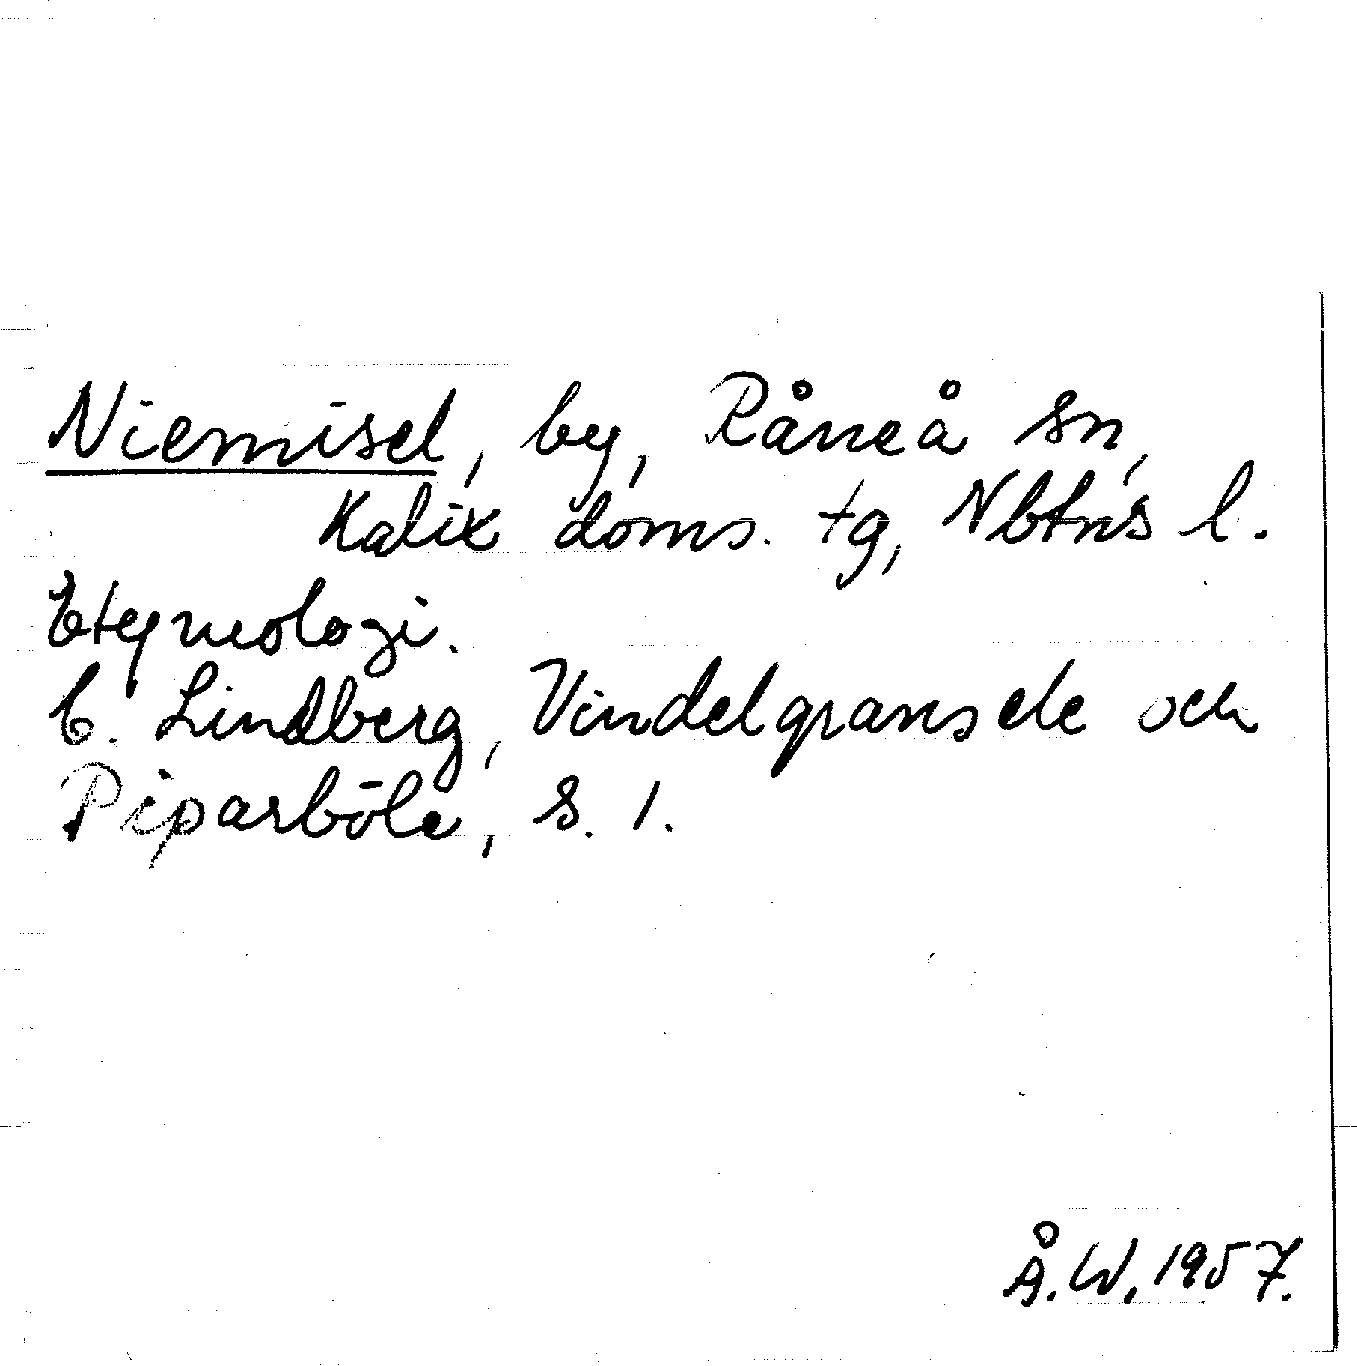 Niemisel, by, Råneå sn,
Kalix doms. tg, Nbtns l.
Etymologi.
C. Lindberg, Vindelgransele och
Piparböle, s. 1.
Å.W. 1957.